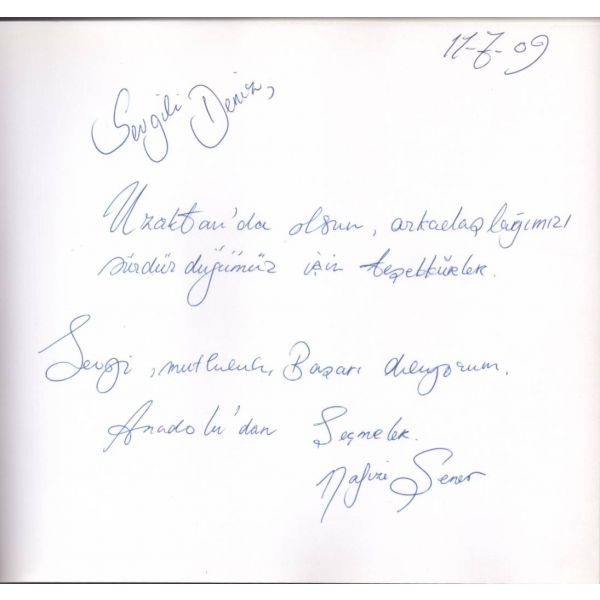 11-7-09
Sevgili Deniz,
Uzaktan'da olsun, arkadaşlağımızı
sürdürdüğümüz için teşekkürler.
Sevgi, mutluluk, Başarı diliyorum.
Anadolu'dan Seçmeler.
Şener